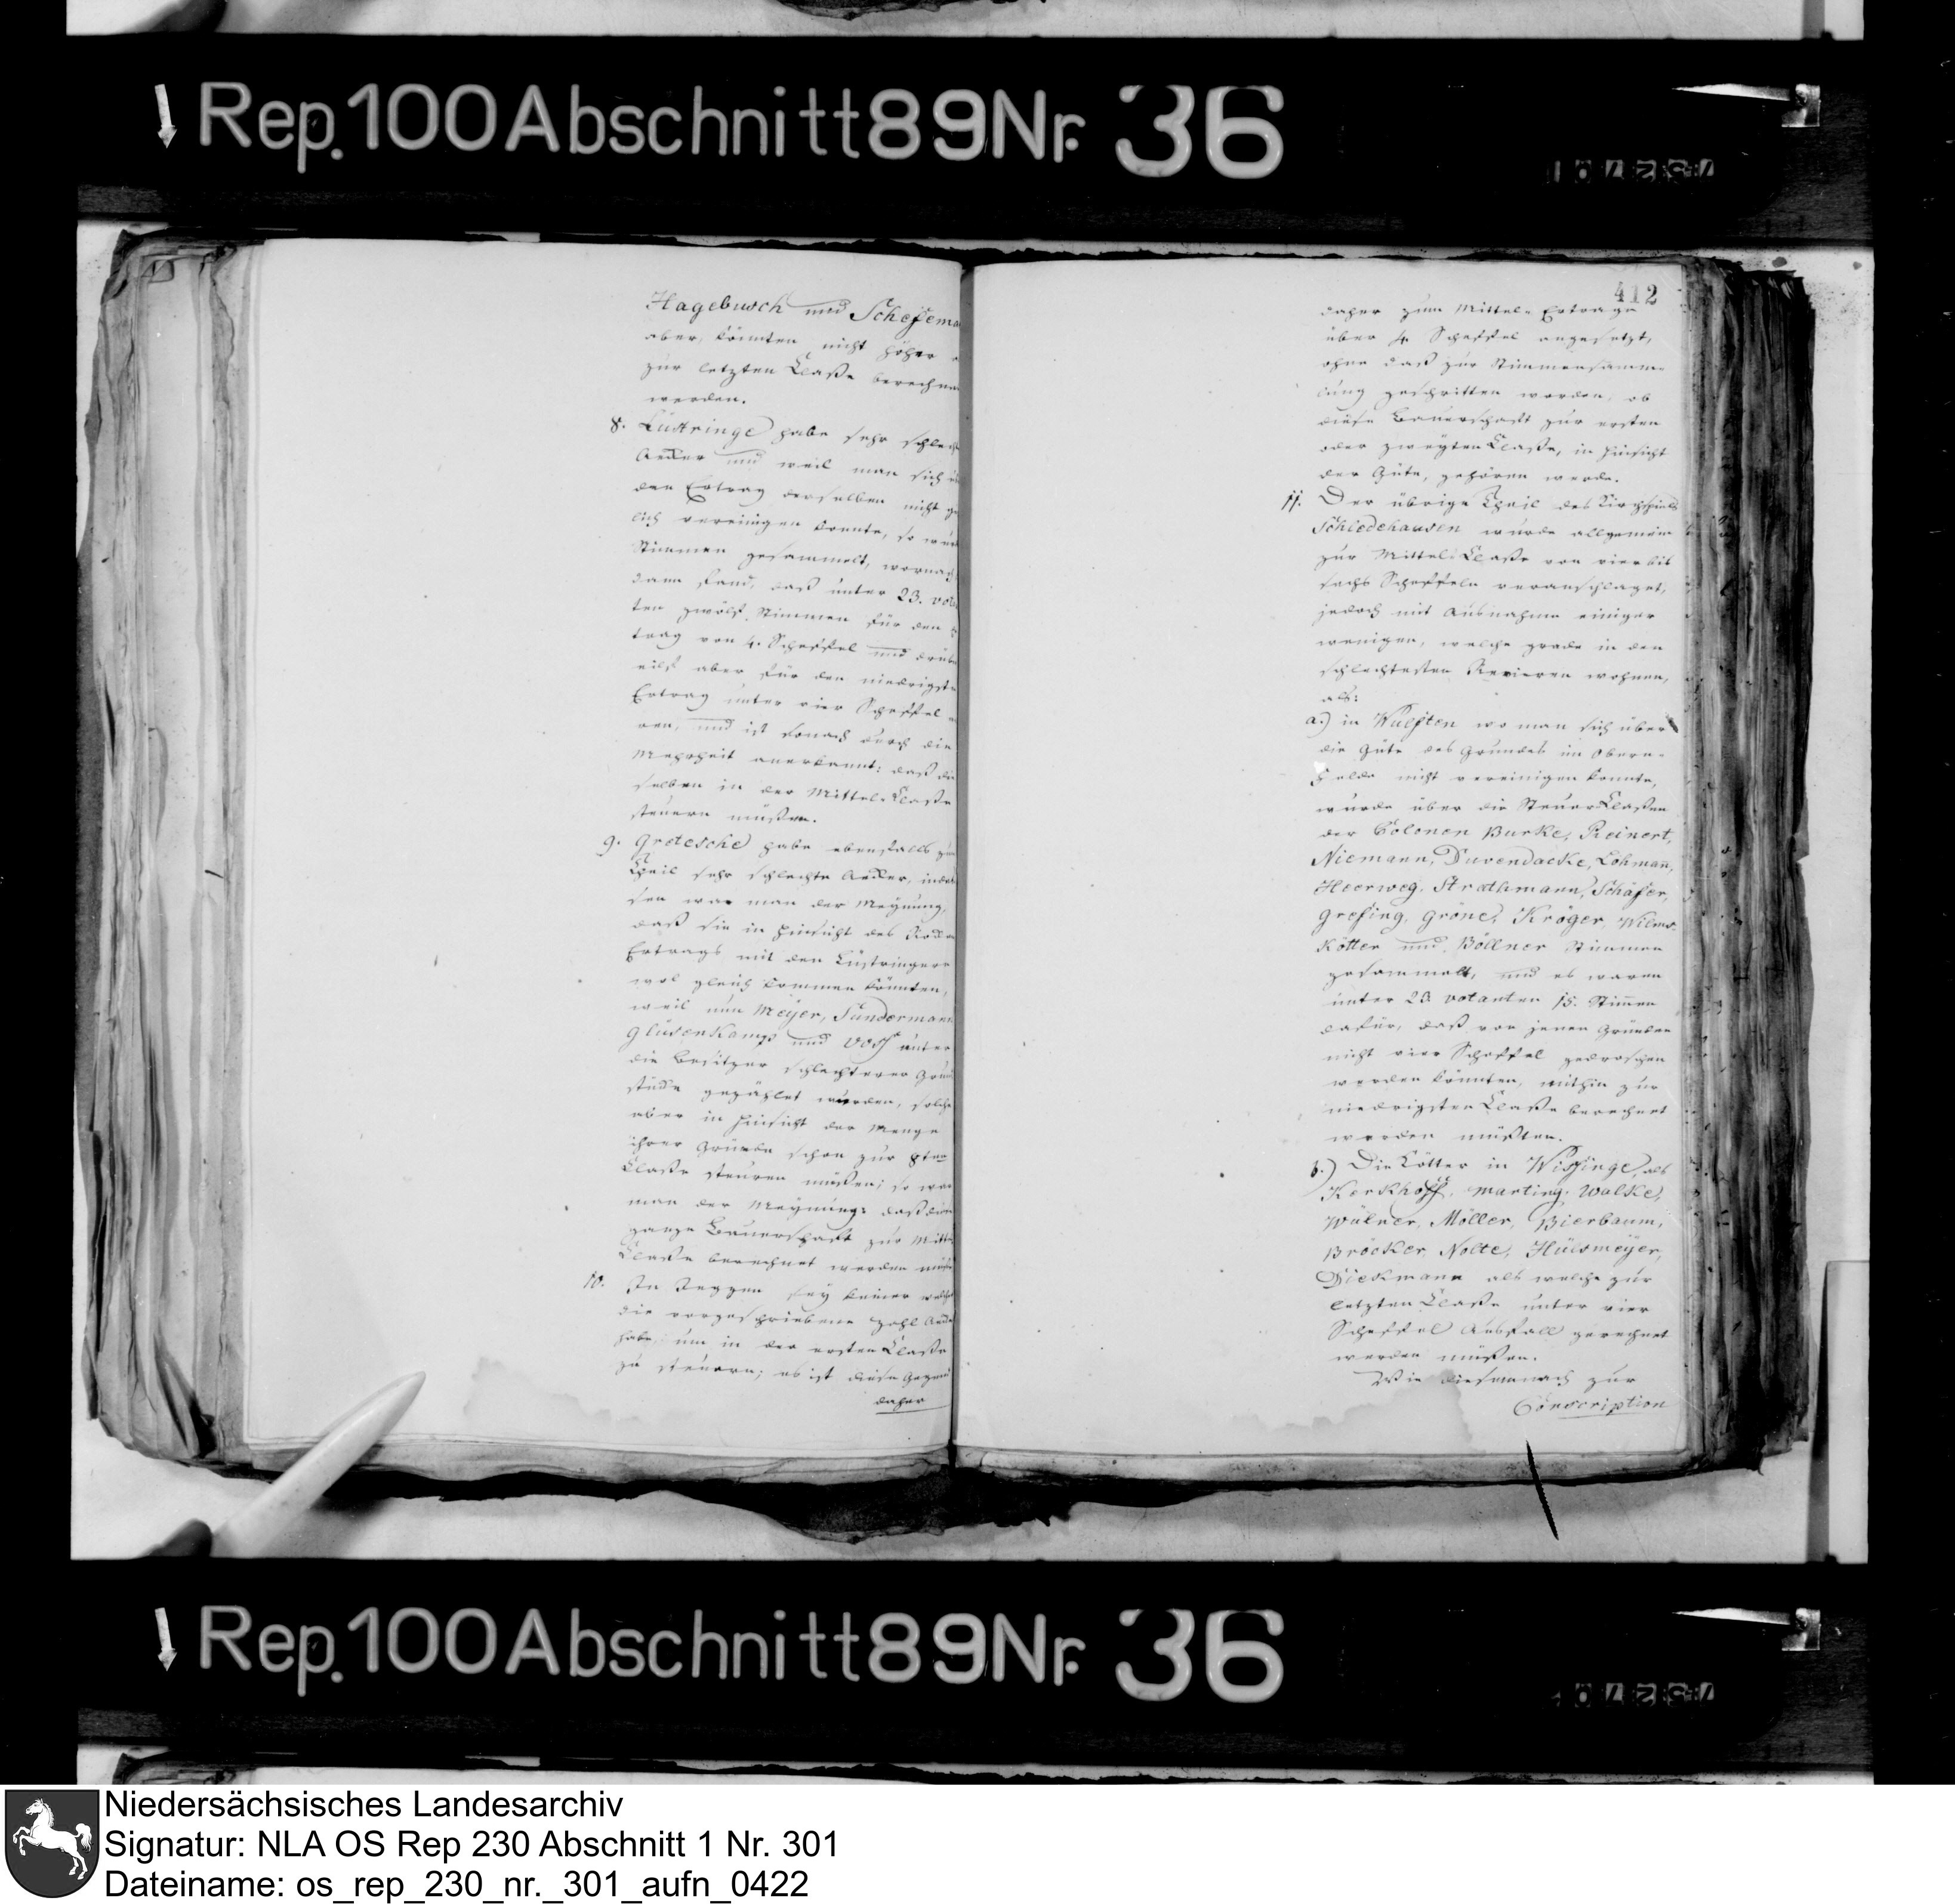 Rep. 100 Abschnitt 89 Nr. 36
Hagebusch und Schefema
aber, könnten nicht höher
zur letzten Claße berechnet
werden.
8. Lüstringe habe sehr schlech
Aecker und weil man sich
den Ertrag derselben nicht
lich vereinigen konnte, so wur
Stimmen gesammelt, wornach
dann fand, daß unter 23. vo
ten zwölf Stimmen für den
trag von 4. Scheffel und drüb
eilf aber für den niedrigst
Ertrag unter vier Scheffel
ren, und ist sonach durch die
Mehrheit anerkannt: daß die
selben in der Mittel-Claße
steuern müßen.
9. Gretesche habe ebenfalls zu
Theil sehr schlechte Aecker, indeß
sen war man der Meynung,
daß sie in Hinsicht des Rocken
Ertrags mit den Lüstringern
wol gleich kommen könnten,
weil nun Meyer, Sundermann
Glusenkamp und Voss unter
die Besitzer schlechterer Grund
stücke gezählet wurden, solche
aber in Hinsicht der Menge
ihrer Gründe schon zur 8ten
Claße steuren müßen; so war
man der Meynung: daß diese
ganze Bauerschaft zur Mittel
Claße berechnet werden müße
10. In Jeggen sey keiner welcher
die vorgeschriebene Zahl Aecker
habe, um in der ersten Claße
zu steuern; es ist diese Gegend
daher
412
daher zum Mittel-Ertrage
über 4 Scheffel angesetzt,
ohne daß zur Stimmensamm-
lung geschritten worden, ob
diese Bauerschaft zur ersten
oder zweyten Claße, in Hinsicht
der Güte, gehören werde.
11. Der übrige Theil des Kirchspiels
Schledehausen wurde allgemein
zur Mittel-Claße von vier bis
sechs Scheffeln veranschlaget,
jedoch mit Ausnahme einiger
wenigen, welche grade in den
schlechtesten Revieren wohnen,
als:
a.) in Wulften wo man sich über
die Güte des Grundes im Obern-
Felde nicht vereinigen konnte,
wurde über die Steuer-Claßen
der Colonen Burke, Reinert,
Niemann, Duvendacke, Lohmann,
Heerweg, Strathmann, Schäfer,
Gresing, Gröne, Kröger, Wilms-
Kötter und Böllner Stimmen
gesammelt, und es waren
unter 23 votanten 15. Stimmen
dafür, daß von jenen Gründen
nicht vier Scheffel gedroschen
werden könnten, mithin zur
niedrigsten Claße berechnet
werden müßten.
b.) Die Kötter in Wissinge, als
Kerkhoff, Marting, Walke,
Wülner, Möller, Bierbaum,
Bröcker, Nolte, Hülsmeyer,
Dieckmann als welche zur
letzten Claße unter vier
Scheffel Ausfall gerechnet
werden müßen.
Wie diesemnach zur
Conscription
Rep. 100 Abschnitt 89 Nr. 36
Niedersächsisches Landesarchiv
Signatur: NLA OS Rep 230 Abschnitt 1 Nr. 301
Dateiname: os_rep_230_nr._301_aufn_0422